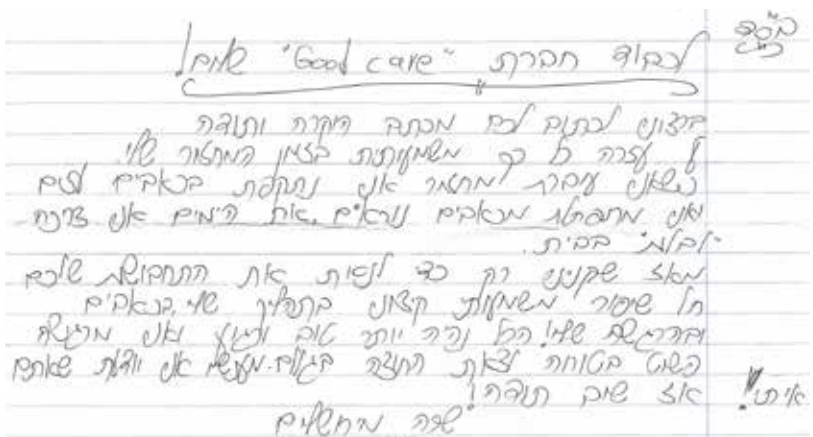 בס"ד
לכבוד חברת "Good care" שלום!
ברצוני לכתוב לכם מכתב הוקרה ותודה
על עזרה כל כך משמעותית בזמן המחזור שלי.
כשאני עוברת מחזור אני נתקפת בכאבים
ואני מתפתלת מכאבים נוראים, את הימים אני צריכה
"לבלות" בבית.
מאז שקניתי רק כדי לנסות את התחבושת שלכם
חל שיפור משמעותי קיצוני בתהליך שלי, בכאבים
ובהרגשה שלי! הכל נהיה יותר טוב ורגוע ואני מרגישה
פשוט בטוחה לצאת החוצה מעכשיו אני יודעת שאתם
איתי!
אז שוב תודה!
שרה מירושלים